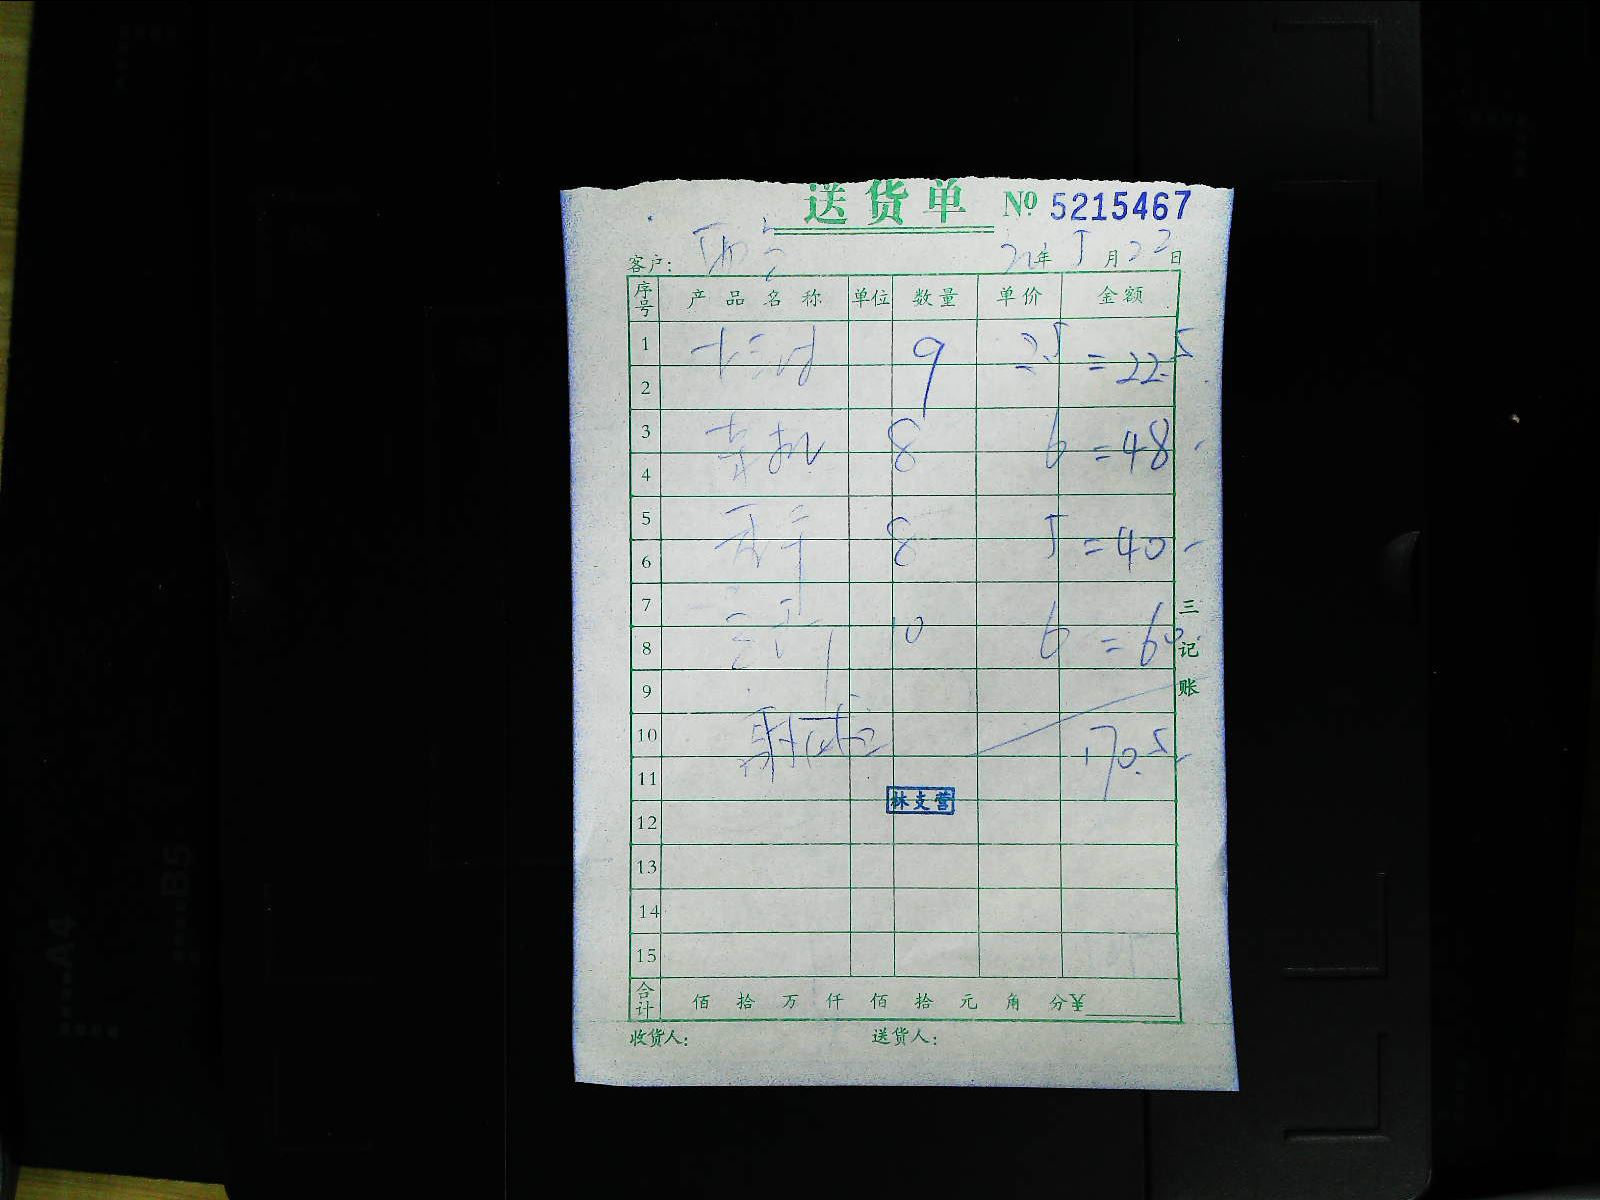 送货单 Nº 5215467
客户: 年 5 月 22 日
序号 产品名称 单位 数量 单价 金额
1 9 2.5 = 22.5
2
3 8 6 = 48
4
5 8 5 = 40
6
7
8 10 6 = 60
9
10 170.5
11
12 林支营
13
14
15
合计 佰 拾 万 仟 佰 拾 元 角 分¥
收货人: 送货人:
三记账
A4
B5